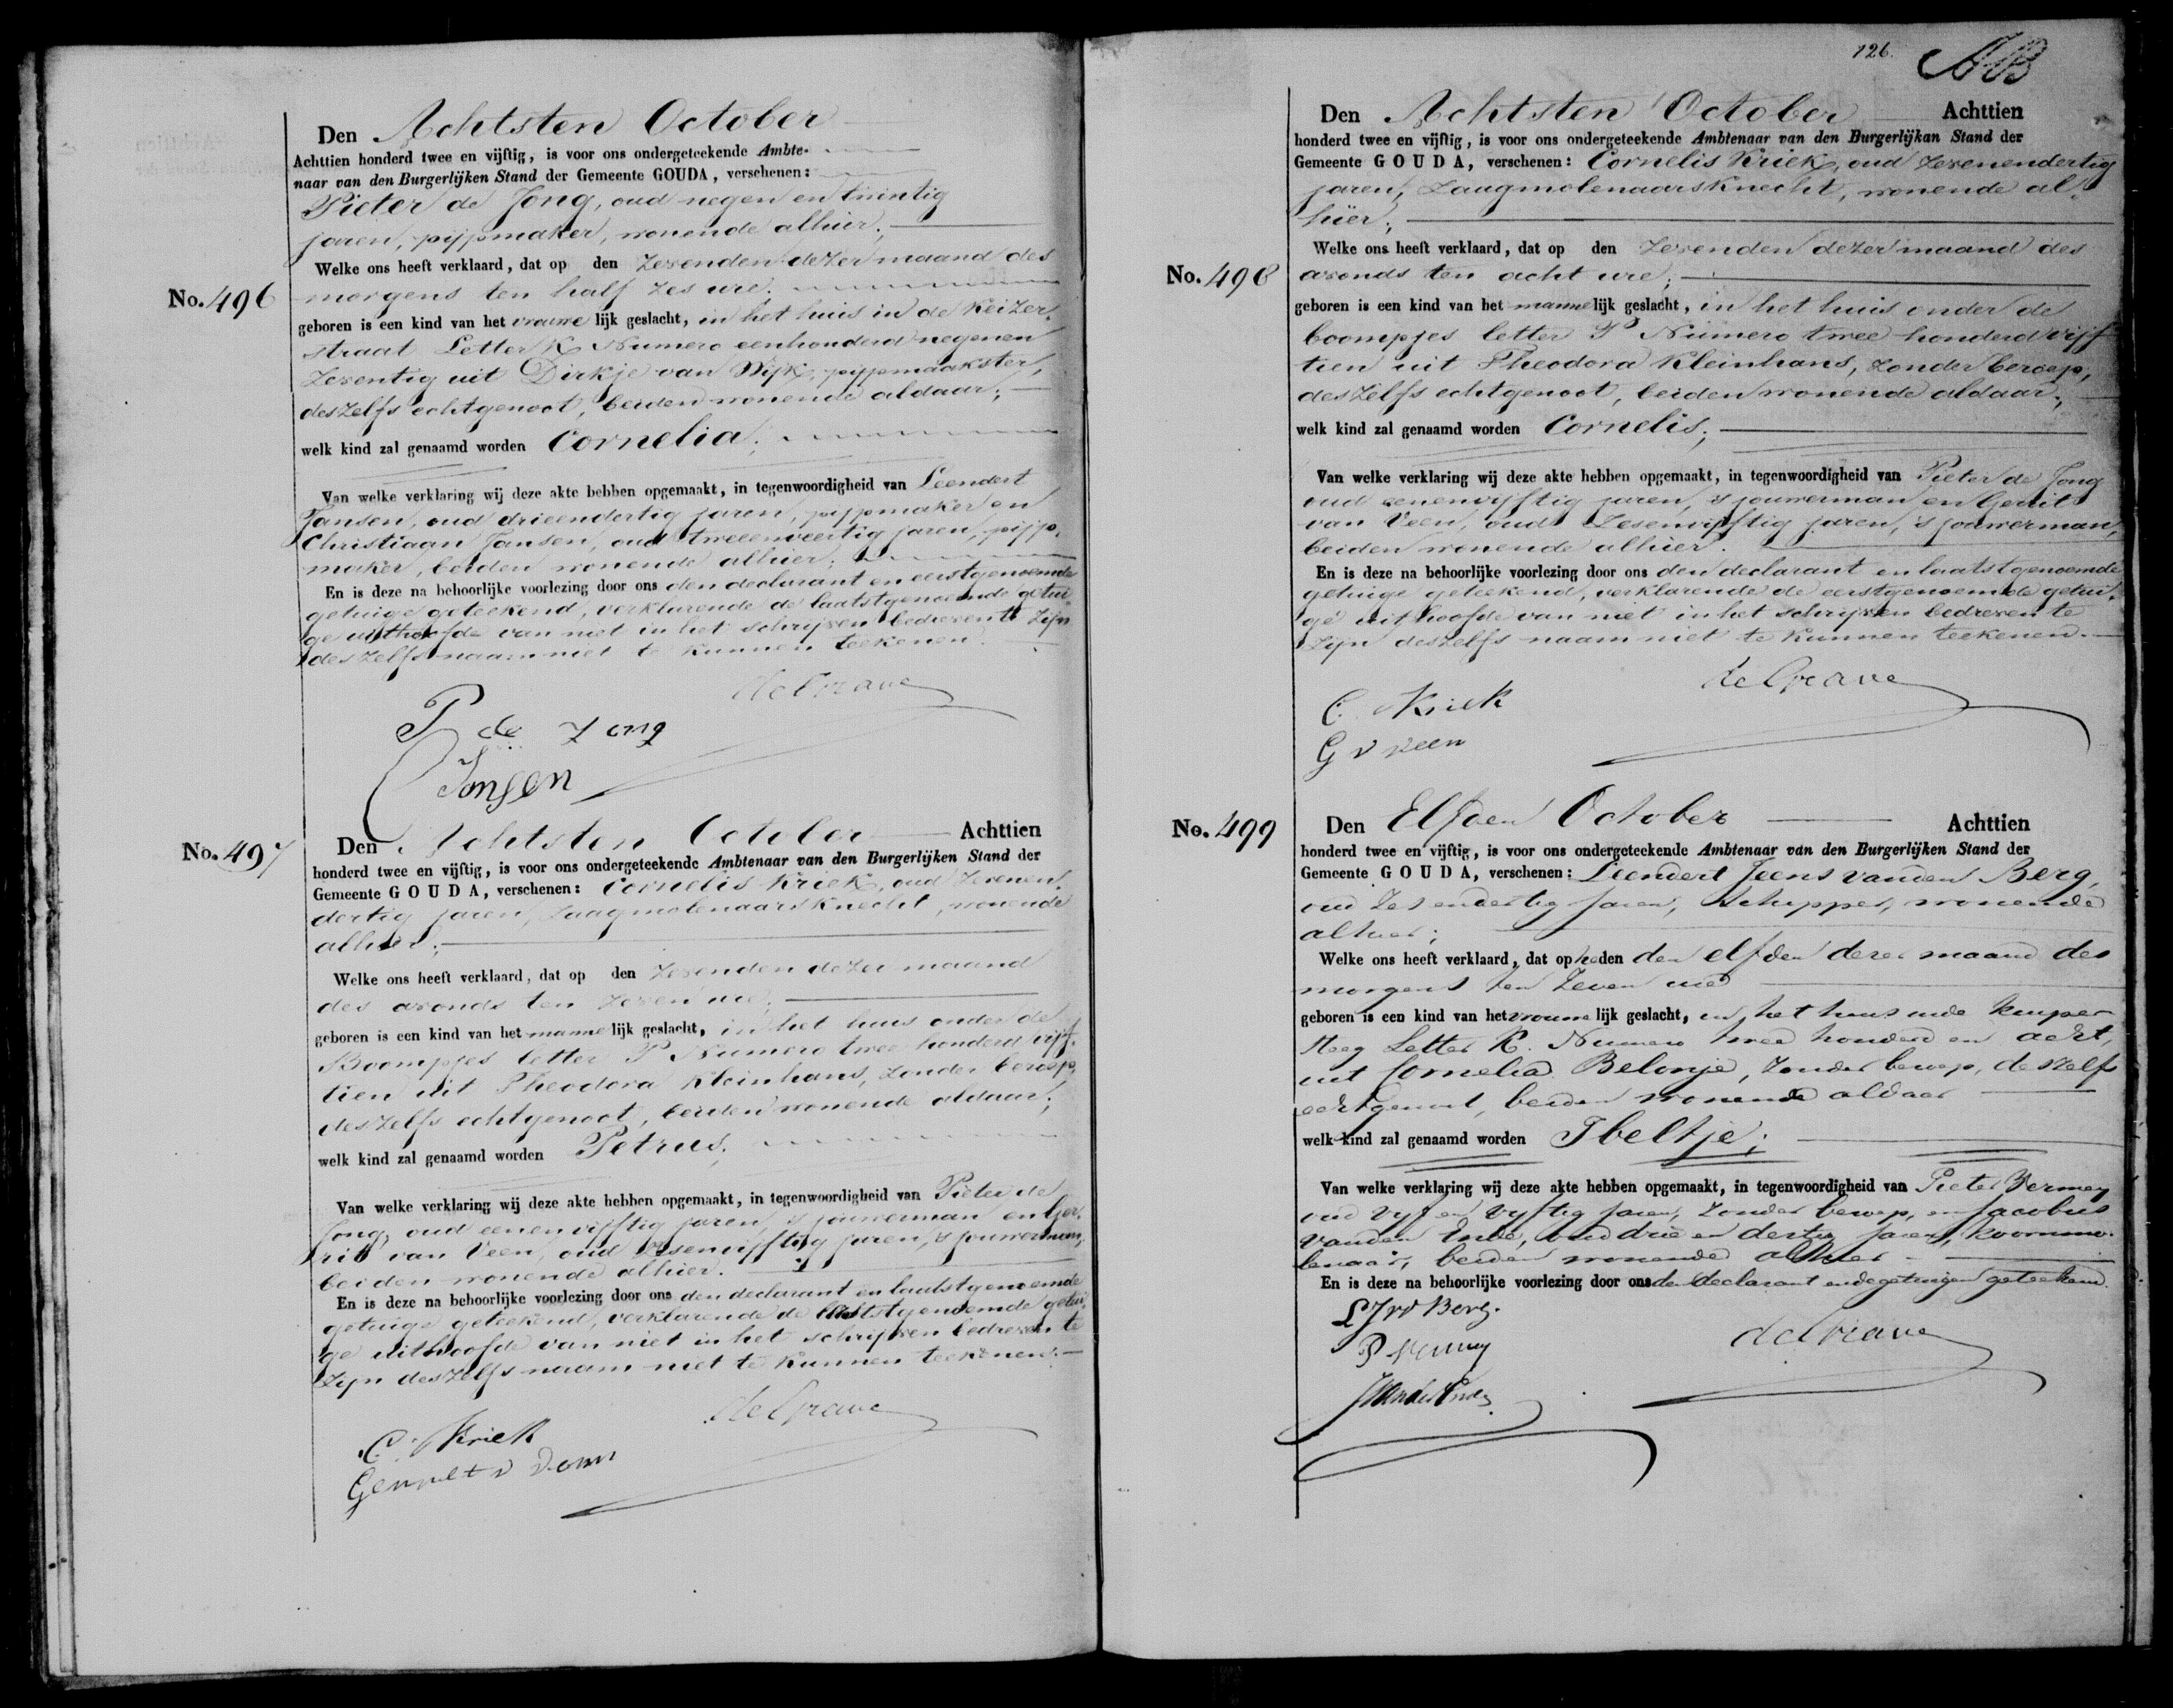 Den Achtsten October
Achttien honderd twee en vijftig, is voor ons ondergeteekende Ambte-
naar van den Burgerlijken Stand der Gemeente GOUDA, verschenen:
Pieter de Jong, oud negen en twintig
jaren, pijpmaker, wonende alhier;
Welke ons heeft verklaard, dat op den zevenden dezer maand des
No. 496
morgens ten half zes ure;
geboren is een kind van het vrouwelijk geslacht, in het huis in de Keizer-
straat Letter K Numero eenhonderd negenen
zeventig uit Dirkje van Wijk, pijpmaakster,
deszelfs echtgenoot, beiden wonende aldaar;
welk kind zal genaamd worden Cornelia;
Van welke verklaring wij deze akte hebben opgemaakt, in tegenwoordigheid van Leendert
Jansen, oud drieendertig jaren, pijpmaker en
Christiaan Jansen, oud tweeenveertig jaren, pijp-
maker, beiden wonende alhier.
En is deze na behoorlijke voorlezing door ons den declarant en eerstgenoemde
getuige geteekend, verklarende de laatstgenoemde getui-
ge uithoofde van niet in het schrijven bedreven te zijn
deszelfs naam niet te kunnen teekenen.
de Grave
P de Jong
Jansen
No. 497
Den Achtsten October Achttien
honderd twee en vijftig, is voor ons ondergeteekende Ambtenaar van den Burgerlijken Stand der
Gemeente GOUDA, verschenen: Cornelis Kriek, oud zevenen-
dertig jaren, Zaagmolenaarsknecht, wonende
alhier;
Welke ons heeft verklaard, dat op den zevenden dezer maand
des avonds ten zeven ure;
geboren is een kind van het mannelijk geslacht, in het huis onder de
Boompjes letter P Numero twee honderd vijf-
tien uit Theodora Kleinhans, zonder beroep,
deszelfs echtgenoot, beiden wonende aldaar;
welk kind zal genaamd worden Petrus;
Van welke verklaring wij deze akte hebben opgemaakt, in tegenwoordigheid van Pieter de
Jong, oud eenenvijftig jaren, 's jouwerman en Ger-
rit van Veen, oud zesenvijftig jaren, 's jouwerman,
beiden wonende alhier.
En is deze na behoorlijke voorlezing door ons den declarant en laatstgenoemde
getuige geteekend, verklarende de genoemde getui-
ge uithoofde van niet in het schrijven bedreven te
zijn deszelfs naam niet te kunnen teekenen.
de Grave
C. Kriek
126.
Den Achtsten October Achttien
honderd twee en vijftig, is voor ons ondergeteekende Ambtenaar van den Burgerlijkan Stand der
Gemeente GOUDA, verschenen: Cornelis Kriek, oud zevenendertig
jaren, Zaagmolenaarsknecht, wonende al-
hier;
Welke ons heeft verklaard, dat op den zevenden dezer maand des
No. 498
avonds ten acht ure;
geboren is een kind van het mannelijk geslacht, in het huis onder de
boompjes letter P Numero twee honderd vijf
tien uit Theodora Kleinhans, zonder beroep,
deszelfs echtgenoot, beiden wonende aldaar;
welk kind zal genaamd worden Cornelis;
Van welke verklaring wij deze akte hebben opgemaakt, in tegenwoordigheid van Pieter de Jong
oud eenenvijftig jaren, 's jouwerman en Gerrit
van Veen, oud zesenvijftig jaren, 's jouwerman,
beiden wonende alhier.
En is deze na behoorlijke voorlezing door ons den declarant en laatstgenoemde
getuige geteekend, verklarende de eerstgenoemde getui-
ge uithoofde van niet in het schrijven bedreven te
zijn deszelfs naam niet te kunnen teekenen.
de Grave
C. Kriek
G v veen
No. 499
Den Elfden October Achttien
honderd twee en vijftig, is voor ons ondergeteekende Ambtenaar van den Burgerlijken Stand der
Gemeente GOUDA, verschenen: Leendert Jeens vanden Berg,
oud zesendertig jaren, Schipper, wonende
alhier;
Welke ons heeft verklaard, dat op heden den elfden dezer maand des
morgens ten zeven ure
geboren is een kind van het vrouwelijk geslacht, in het huis inde Keuper
steeg Letter R. Numero twee honderd en acht,
uit Cornelia Belonje, zonder beroep, deszelfs
echtgenoot, beiden wonende aldaar
welk kind zal genaamd worden Ibeltje;
Van welke verklaring wij deze akte hebben opgemaakt, in tegenwoordigheid van Pieter Vermey
oud vijf en vijftig jaren, zonder beroep, en Jacobus
vanden Ende, oud drie en dertig jaren, koornmo-
lenaar, beiden wonende alhier
En is deze na behoorlijke voorlezing door ons den declarant en de getuigen geteekend.
L J vd Berg.
P Vermey
de Grave
J vanden Ende